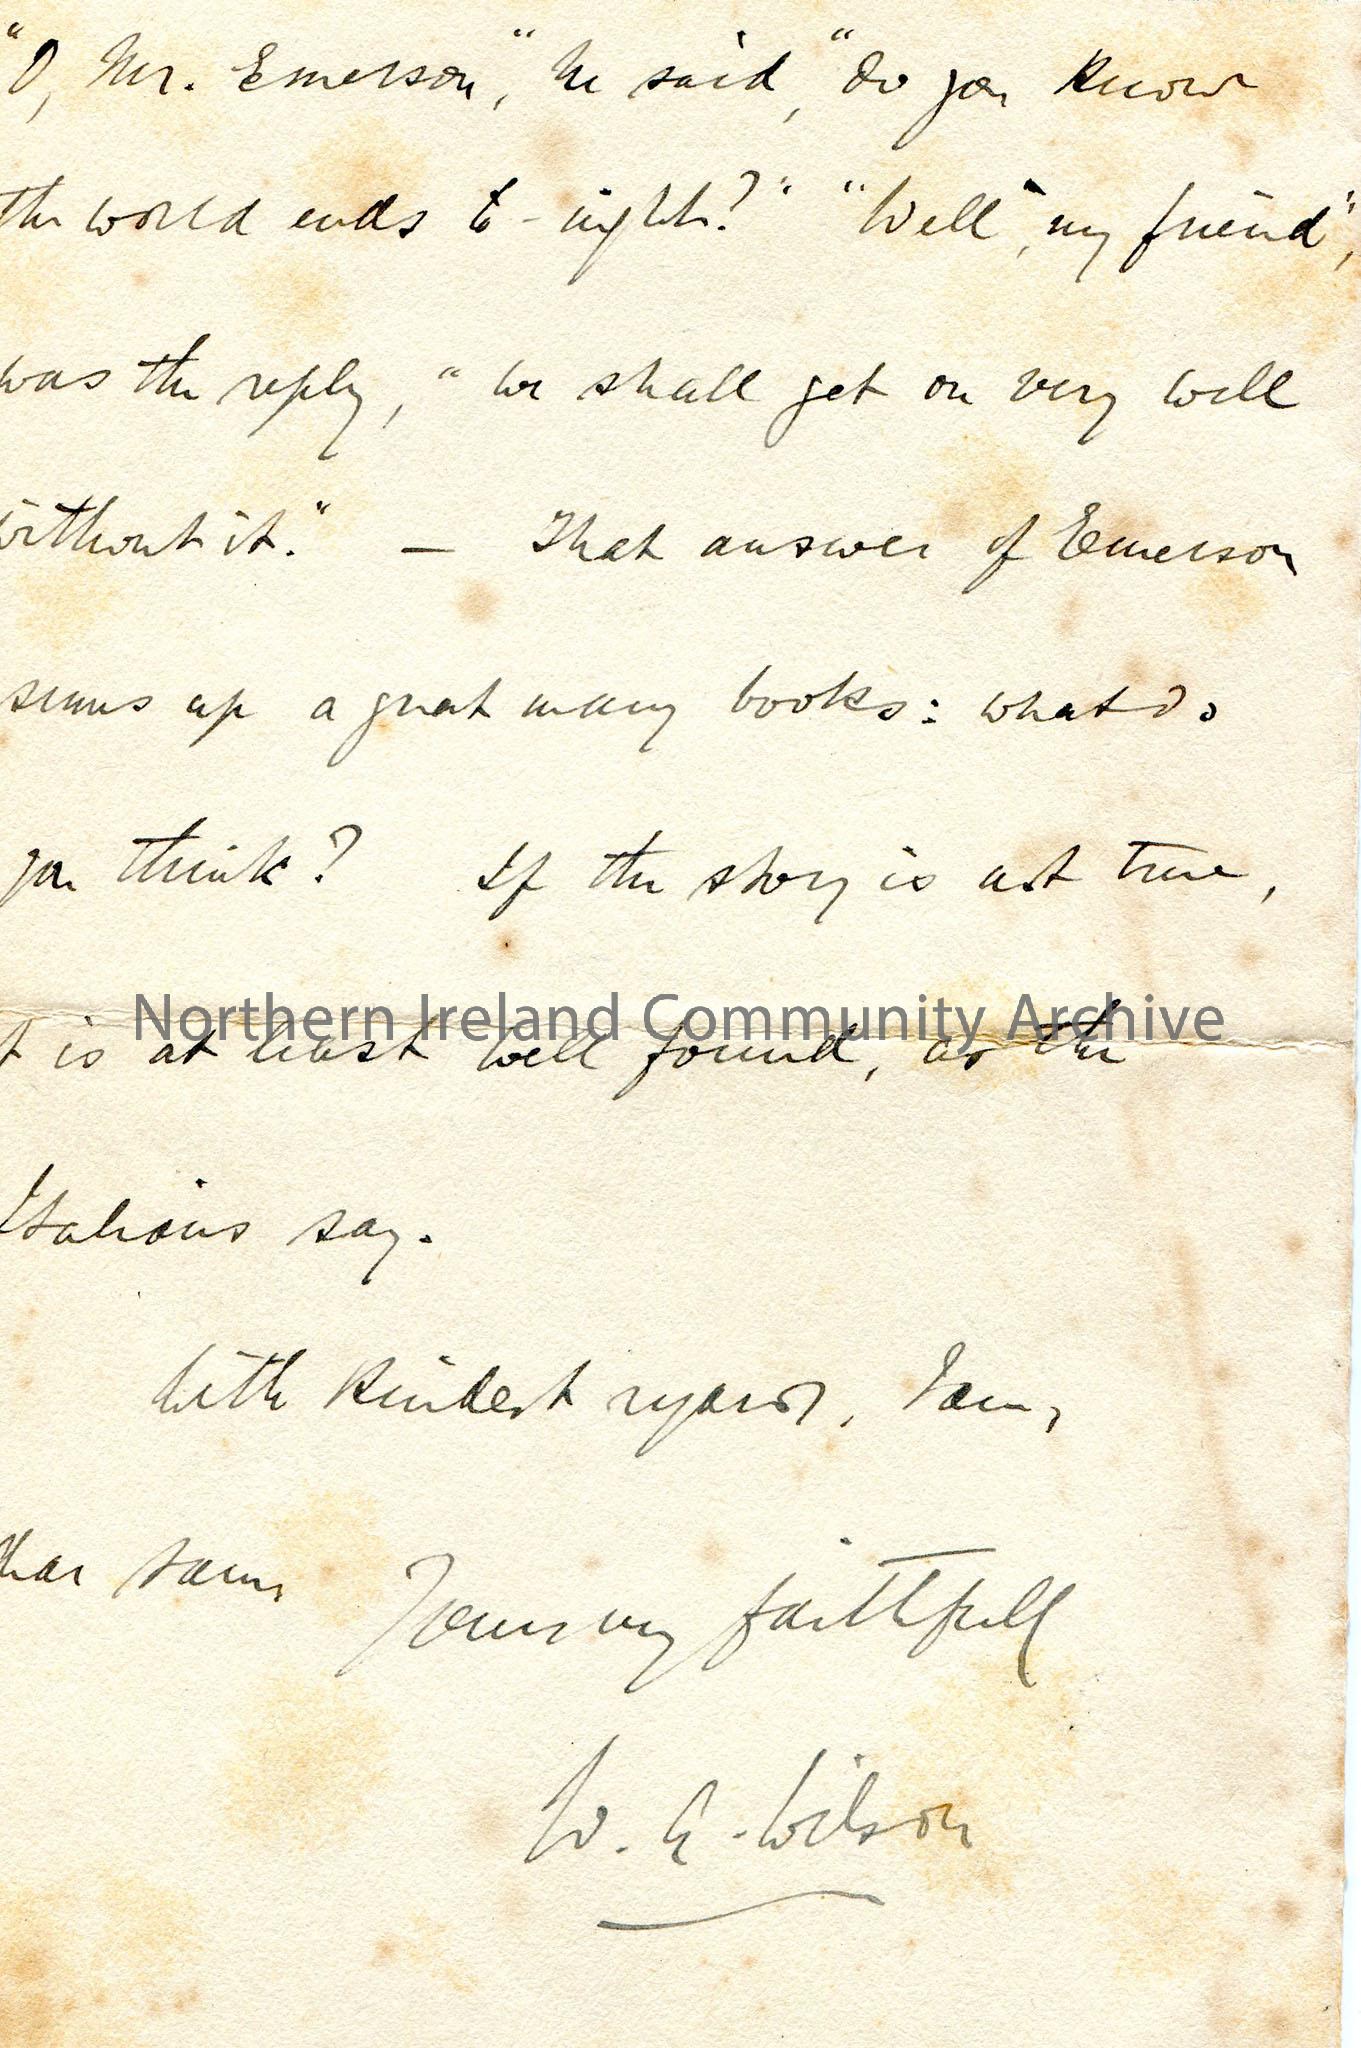 "O, Mr. Emerson," he said, "do you know
the world ends to-night?" "Well, my friend",
was the reply, "we shall get on very well
without it." — That answer of Emerson
sums up a great many books: what do
you think? If the story is not true,
Northern Ireland Community Archive
t is at least well found, as the
Italians say.
With kindest regards, I am,
dear Sam,
Yours very faithfully
W. A. Wilson